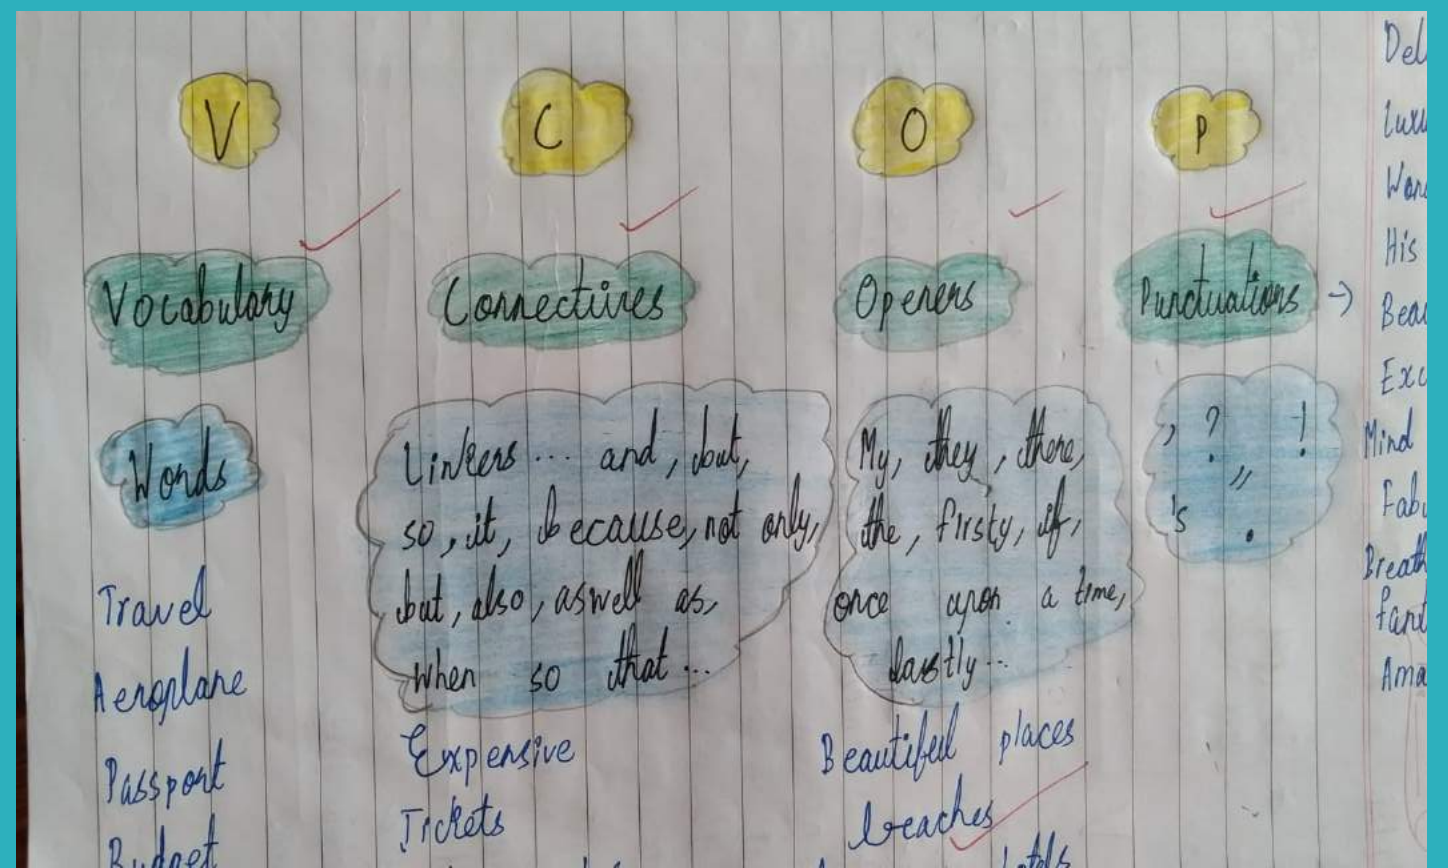 V C O P
Vocabulary Connectives Openers Punctuations →
Words
Linkers ... and, but,
so, it, because, not only,
but, also, aswell as,
when so that ...
My, they, there,
the, firsty, if,
once upon a time,
lastly ...
, ? !
,,
's .
Travel
Aeroplane
Passport
Budget
Expensive
Tickets
Beautiful places
beaches
hotels
Del
Luxu
Won
His
Beau
Exc
Mind
Fabu
Breath
fant
Ama